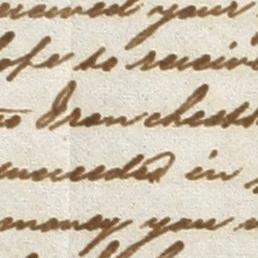 received your
hope to receiv
to Iron chests
succeeded in
money you